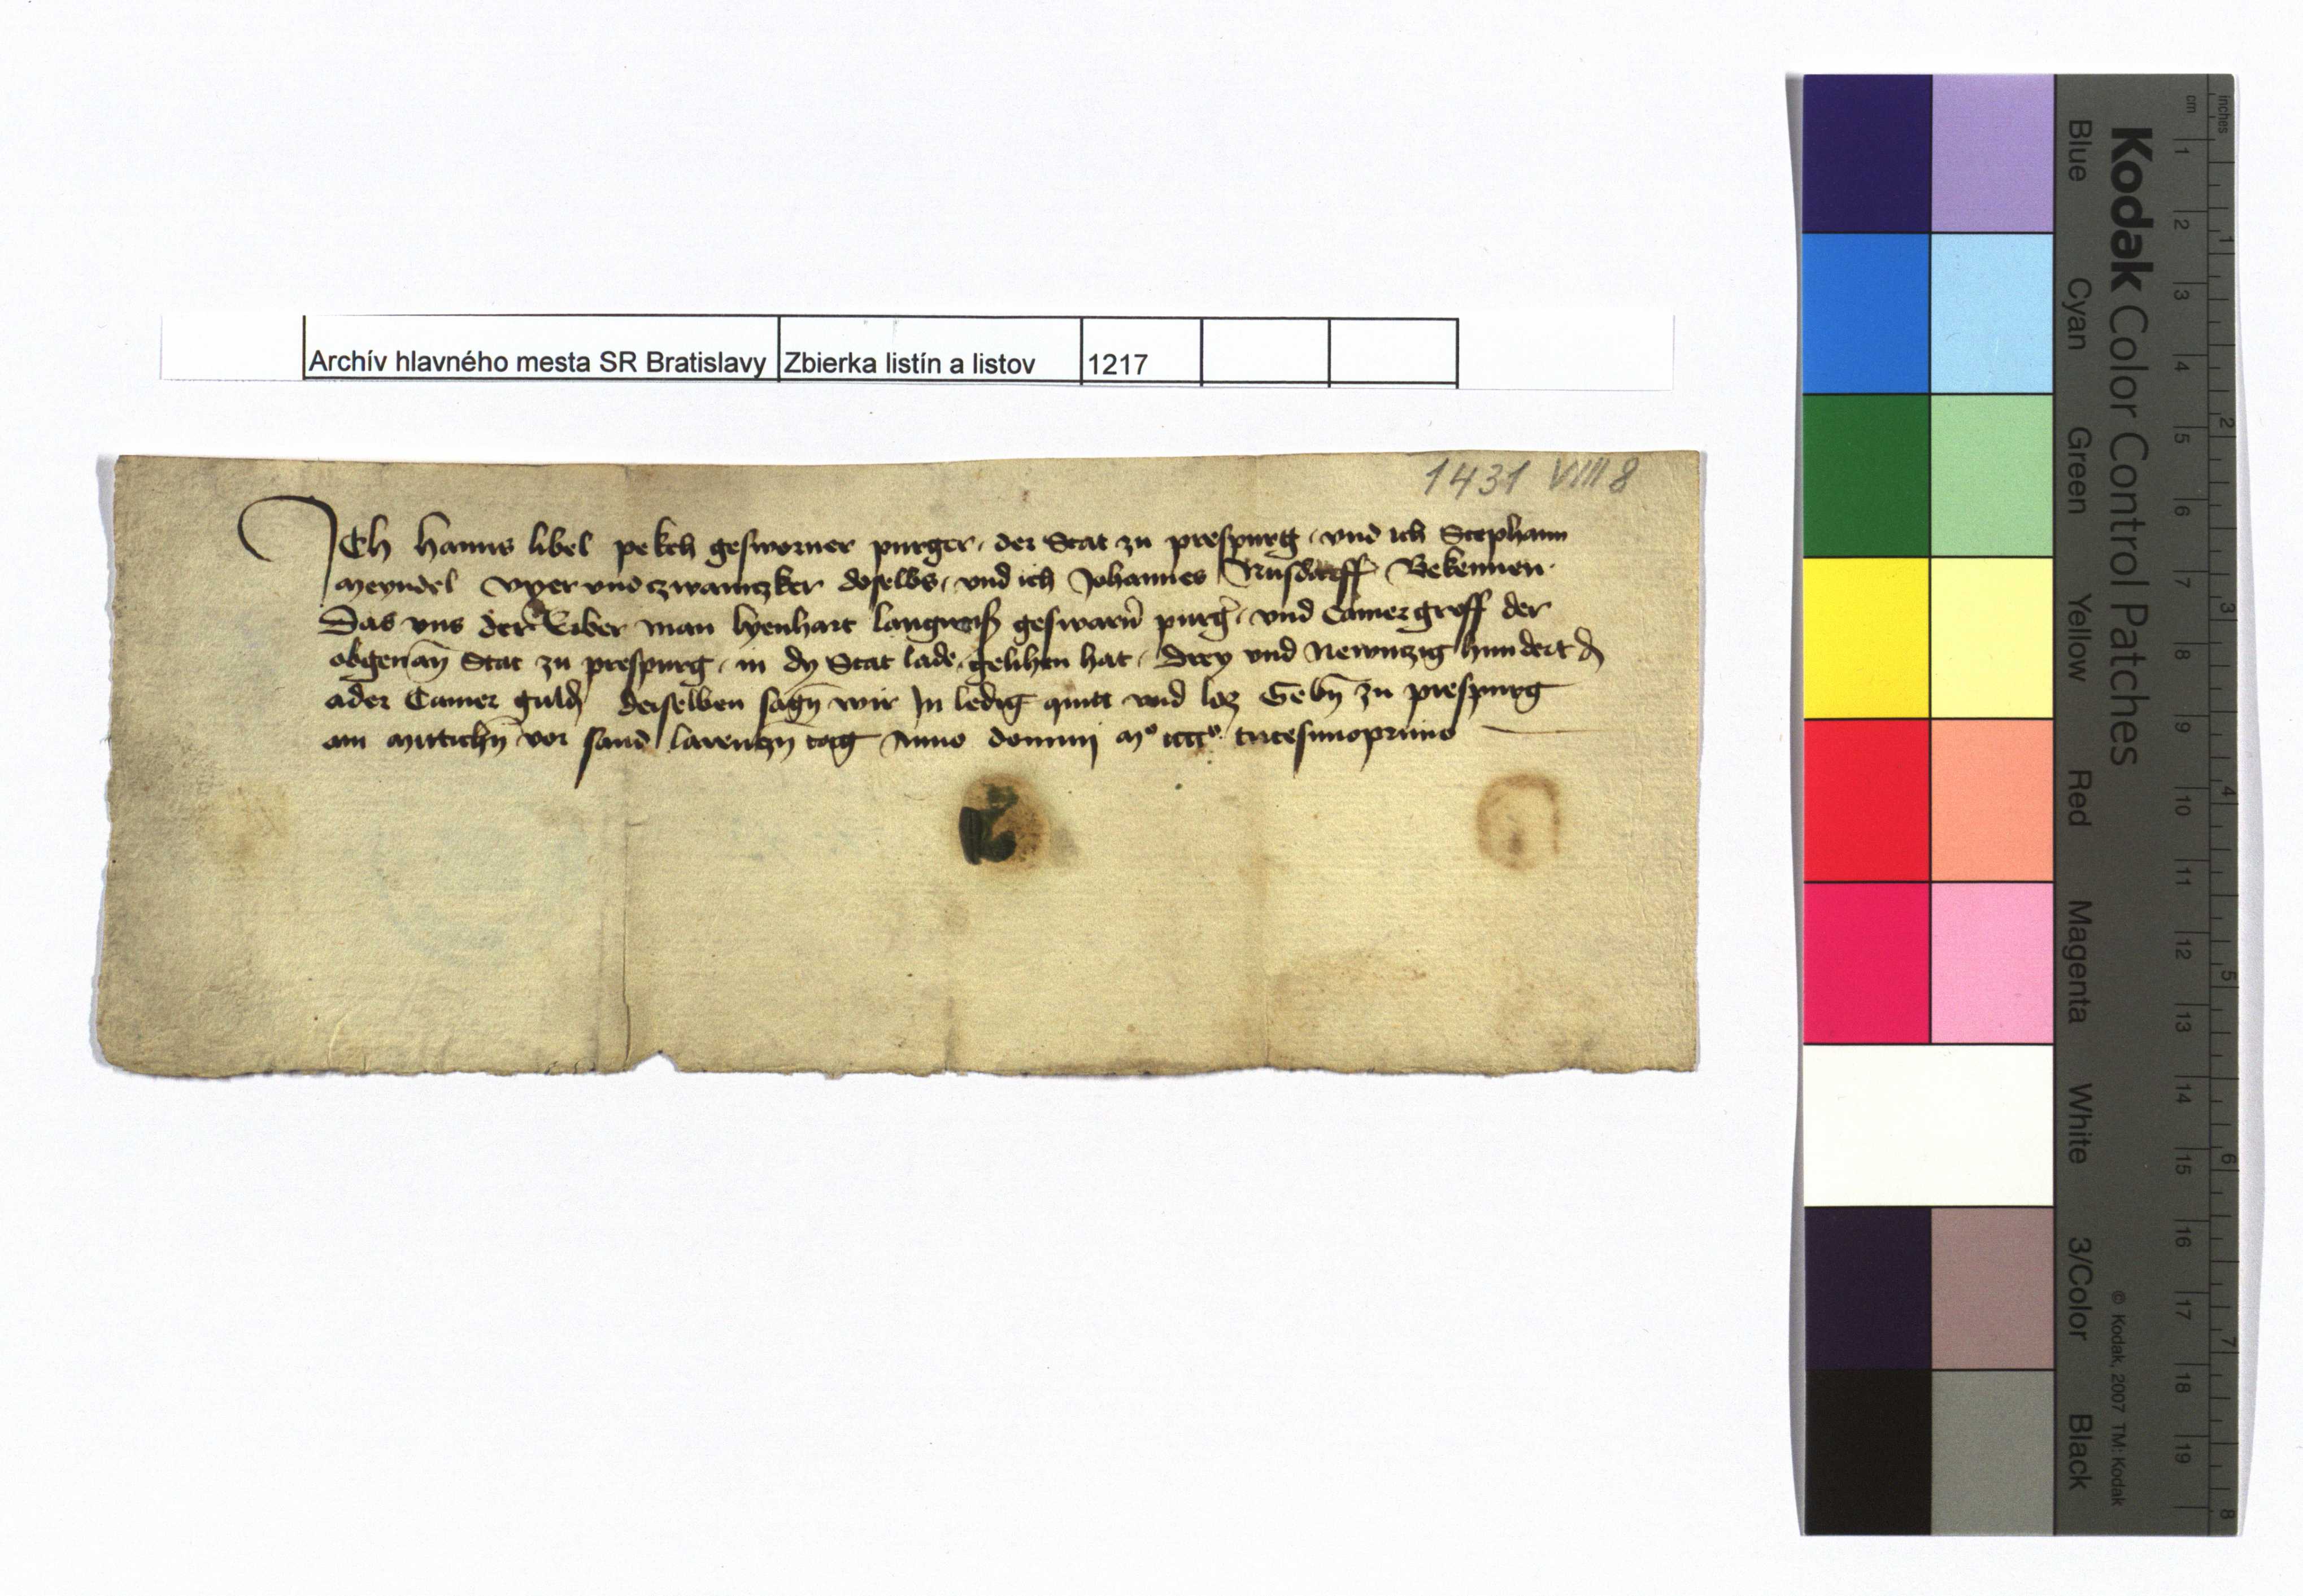 Archív hlavného mesta SR Bratislavy Zbierka listín a listov 1217
1431 VIII 8
Ich hanns libel pekch gesworner purger, der Stat zu prespurg, vnd ich Stephann
meyndel vyer vnd czwainczker doselbs, vnd ich Johannes Nusdorff Bekennen.
Das vns der Erber man lyenhart langweiss geswarn purg, vnd Camergroff der
obgenan Stat zu prespurg, in dy Stat lade, gelihen hat, Drey vnd Newnczig hundert d
ader Camer guld derselben sagn wir In ledig quitt vnd loz Gebn zu prespurg
am mittichn vor sand larenczn tag Anno domini mº ccccº tricesimoprimo
Kodak Color Control Patches
Blue Cyan Green Yellow Red Magenta White 3/Color Black
© Kodak, 2007 TM: Kodak
inches 1 2 3 4 5 6 7 8
cm 1 2 3 4 5 6 7 8 9 10 11 12 13 14 15 16 17 18 19